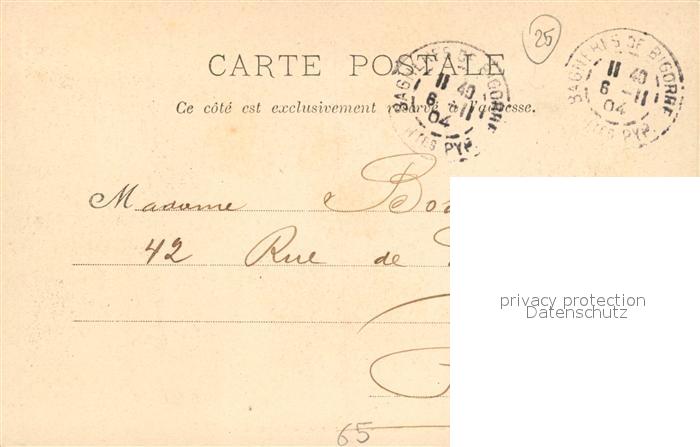 25
CARTE POSTALE
Ce côté est exclusivement réservé à l'adresse.
BAGNÈRES DE BIGORRE
11 40
6 - 11
04
HTES PYR.
BAGNÈRES DE BIGORRE
11 40
6 - 11
04
HTES PYR.
Madame
42 Rue de
privacy protection
Datenschutz
65